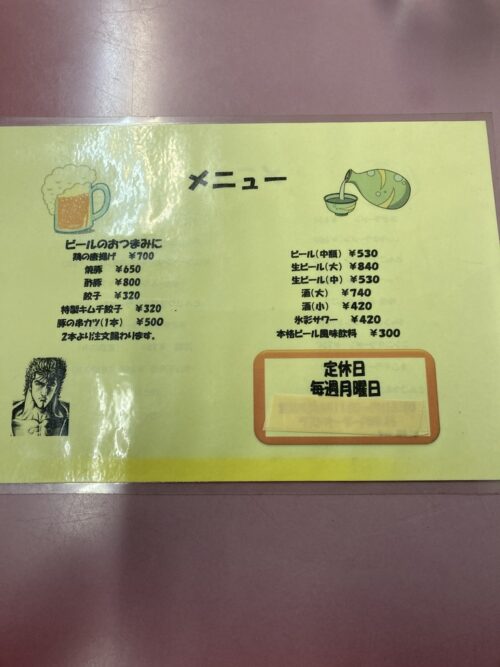 メニュー
ビールのおつまみに
鶏の唐揚げ ¥700
焼豚 ¥650
酢豚 ¥800
餃子 ¥320
特製キムチ餃子 ¥320
豚の串カツ(1本) ¥500
2本より注文賜わります。
ビール(中瓶) ¥530
生ビール(大) ¥840
生ビール(中) ¥530
酒(大) ¥740
酒(小) ¥420
氷彩サワー ¥420
本格ビール風味飲料 ¥300
定休日
毎週月曜日